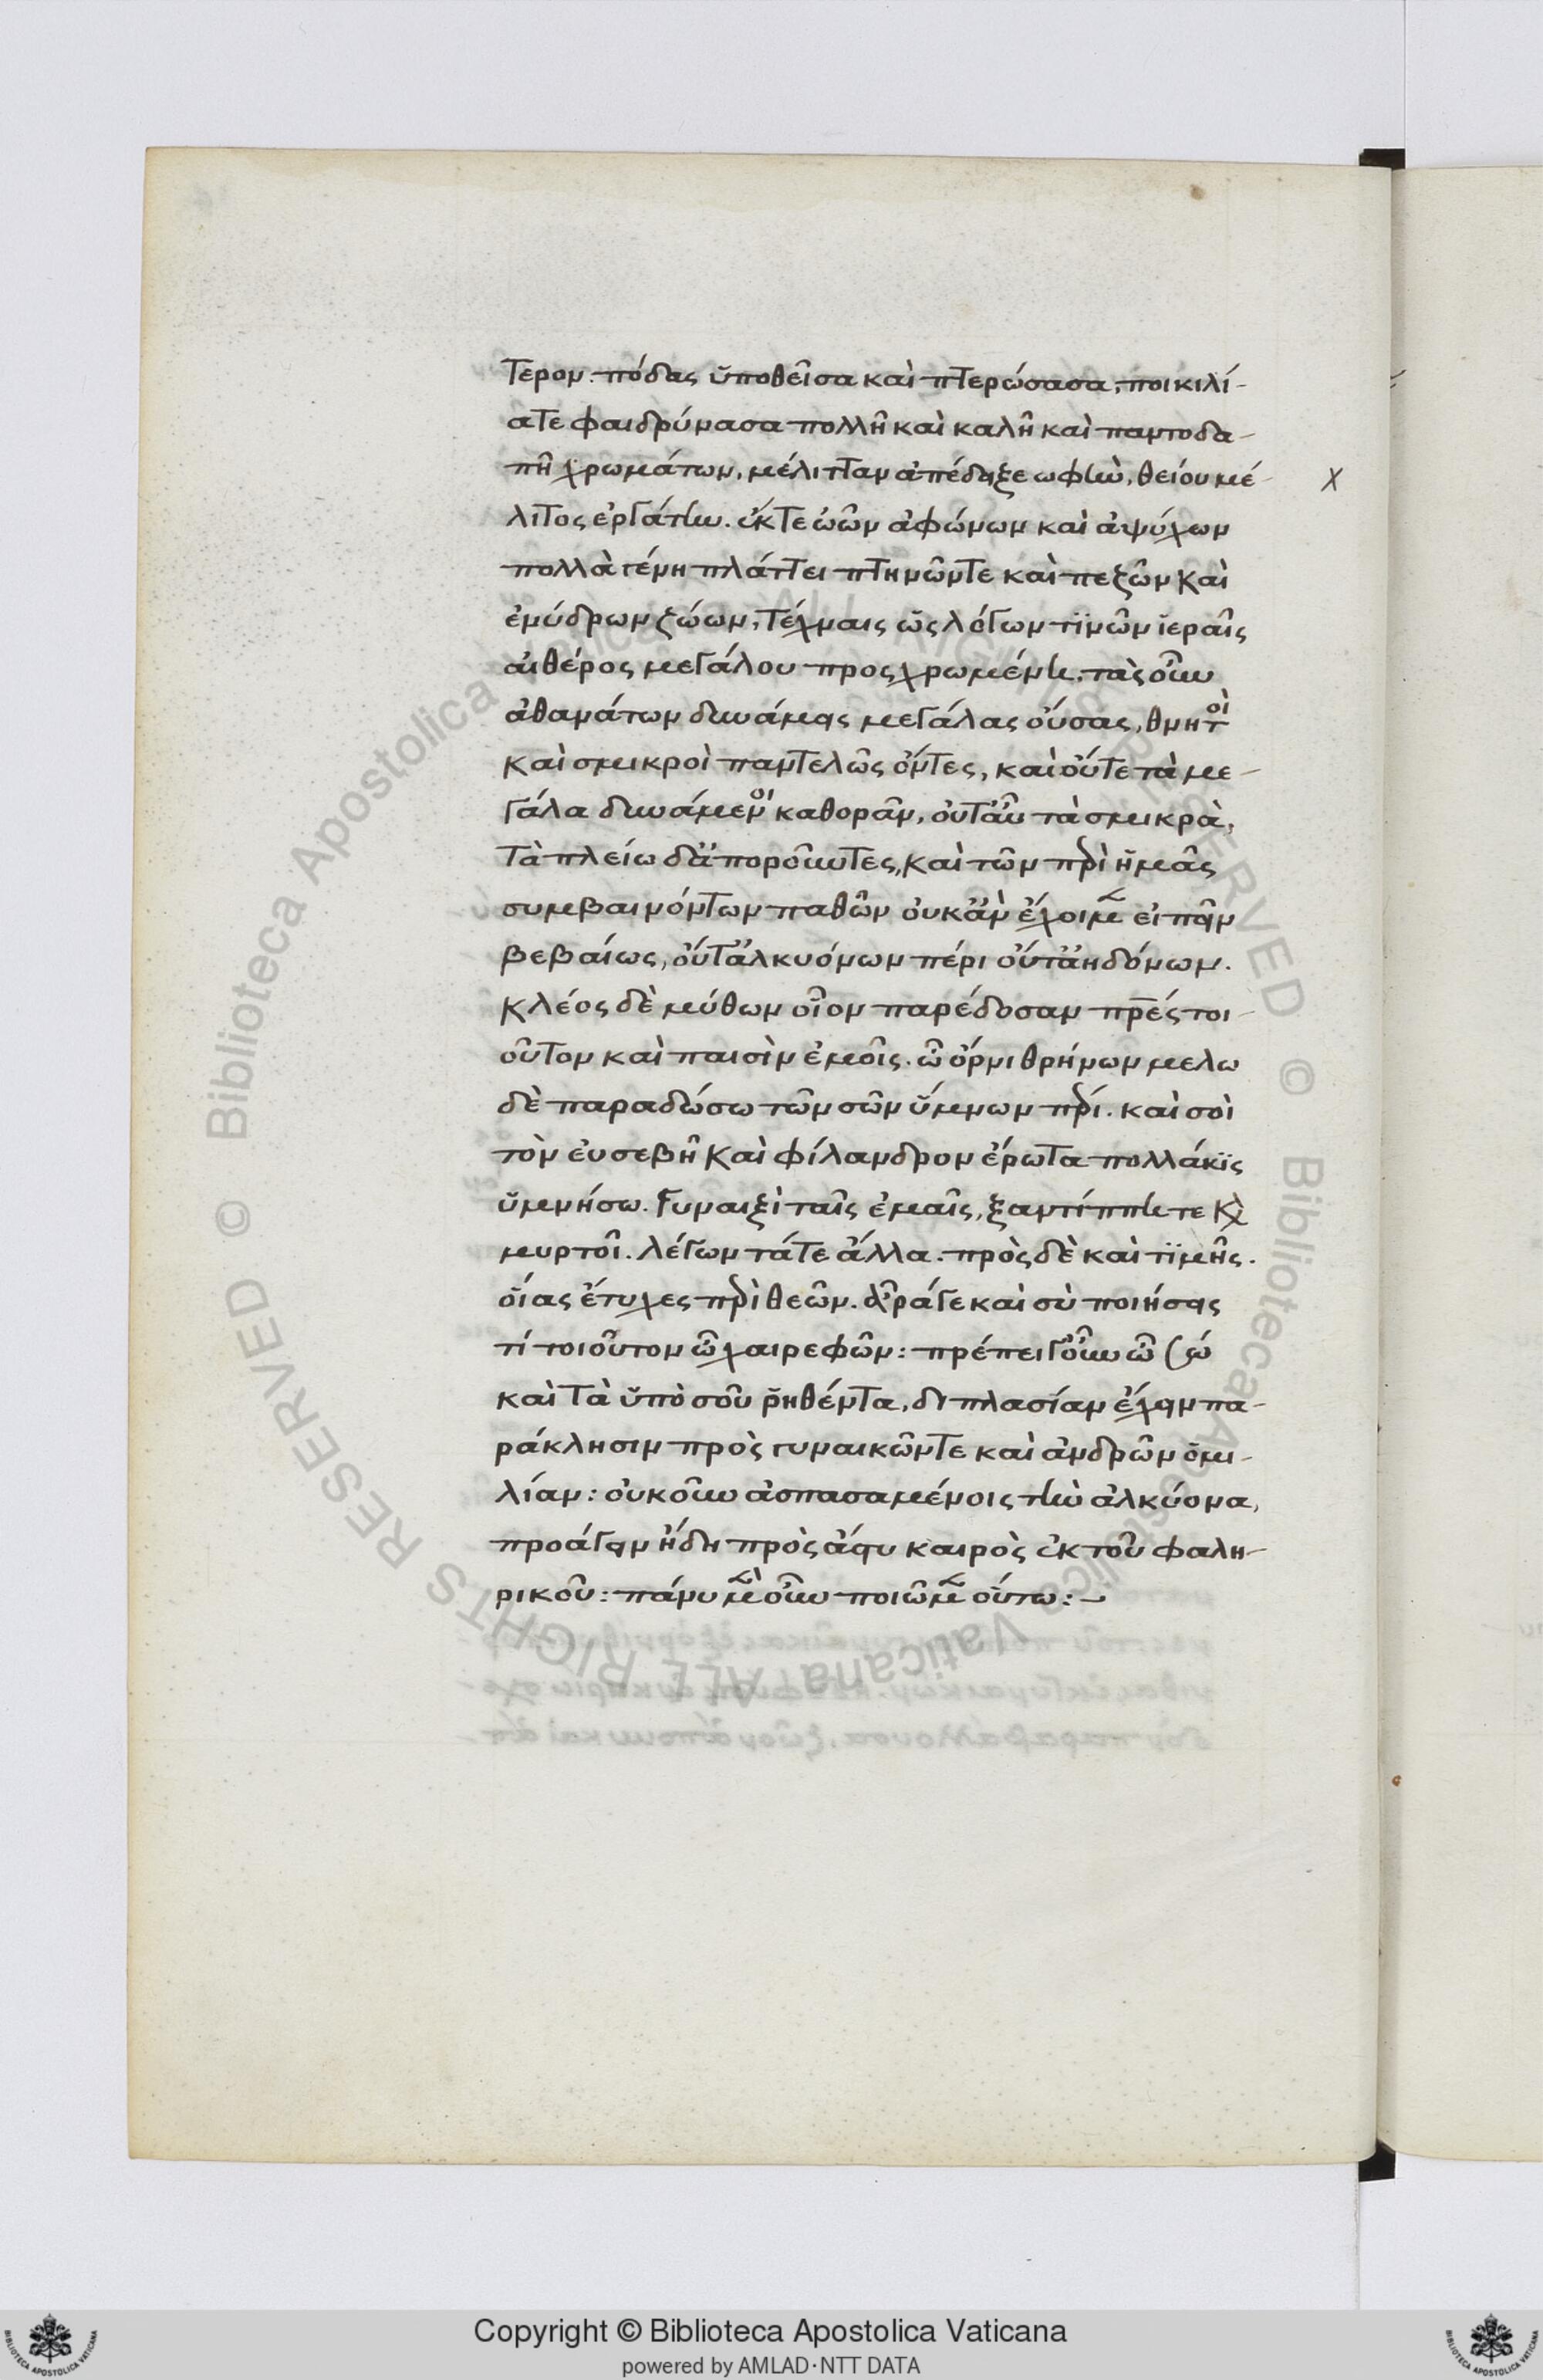 τερον. πόδας ὑποθεῖσα καὶ πτερώσασα, ποικιλί-
ατε φαιδρύνασα πολλῆ καὶ καλῆ καὶ παντοδα-
πῆ χρωμάτων, μέλιτταν ἀπέδειξε σοφὴν, θείου μέ-
λιτος ἐργάτην. ἔκ τε ὠῶν ἀφώνων καὶ ἀψύχων
πολλὰ γένη πλάττει πτηνῶν τε καὶ πεζῶν καὶ
ἐνύδρων ζώων, τέχναις ὥς λόγων τϊνῶν ϊεραῖς
αἰθέρος μεγάλου προςχρωμένη. τὰς οὖν
ἀθανάτων δυνάμεις μεγάλας οὔσας, θνητοὶ
καὶ σμικροὶ παντελῶς ὄντες, καὶ οὔτε τὰ με-
γάλα δυνάμενοι καθορᾶν, οὔτ' αὖ τὰ σμικρὰ,
τὰ πλείω δ' ἀποροῦντες, καὶ τῶν περὶ ἡμᾶς
συμβαινόντων παθῶν οὐκ ἂν ἔχοιμεν εἰπεῖν
βεβαίως, οὔτ' ἀλκυόνων πέρι οὔτ' ἀηδόνων.
κλέος δὲ μύθων οἷον παρέδοσαν πρές τοι-
οῦτον καὶ παισὶν ἐμοῖς. ὦ ὄρνι θρήνων μελω
δὲ παραδώσω τῶν σῶν ὕμνων περί. καὶ σοὶ
τὸν εὐσεβῆ καὶ φίλανδρον ἔρωτα πολλάκϊς
ὑμνήσω. γυναιξὶ ταῖς ἐμαῖς, ξαντίππη τε καὶ
μυρτοῖ. λέγων τάτε ἄλλα. πρὸς δὲ καὶ τϊμῆς.
οἵας ἔτυχες περὶ θεῶν. ἆρά γε καὶ σὺ ποιήσεις
τί τοιοῦτον ὦ χαιρεφῶν: πρέπει γοῦν ὦ σώ
καὶ τὰ ὑπὸ σοῦ ῥηθέντα, διπλασίαν ἔχειν πα-
ράκλησιν πρὸς γυναικῶν τε καὶ ἀνδρῶν ὁμι-
λίαν: οὐκοῦν ἀσπασαμένοις τὴν ἀλκύονα,
προάγειν ἤδη πρὸς ἄστυ καιρὸς ἐκ τοῦ φαλη-
ρικοῦ: πάνυ μὲν οὖν ποιῶμεν οὕτω: –
X
© Biblioteca Apostolica Vaticana ALL RIGHTS RESERVED
Copyright © Biblioteca Apostolica Vaticana
powered by AMLAD·NTT DATA